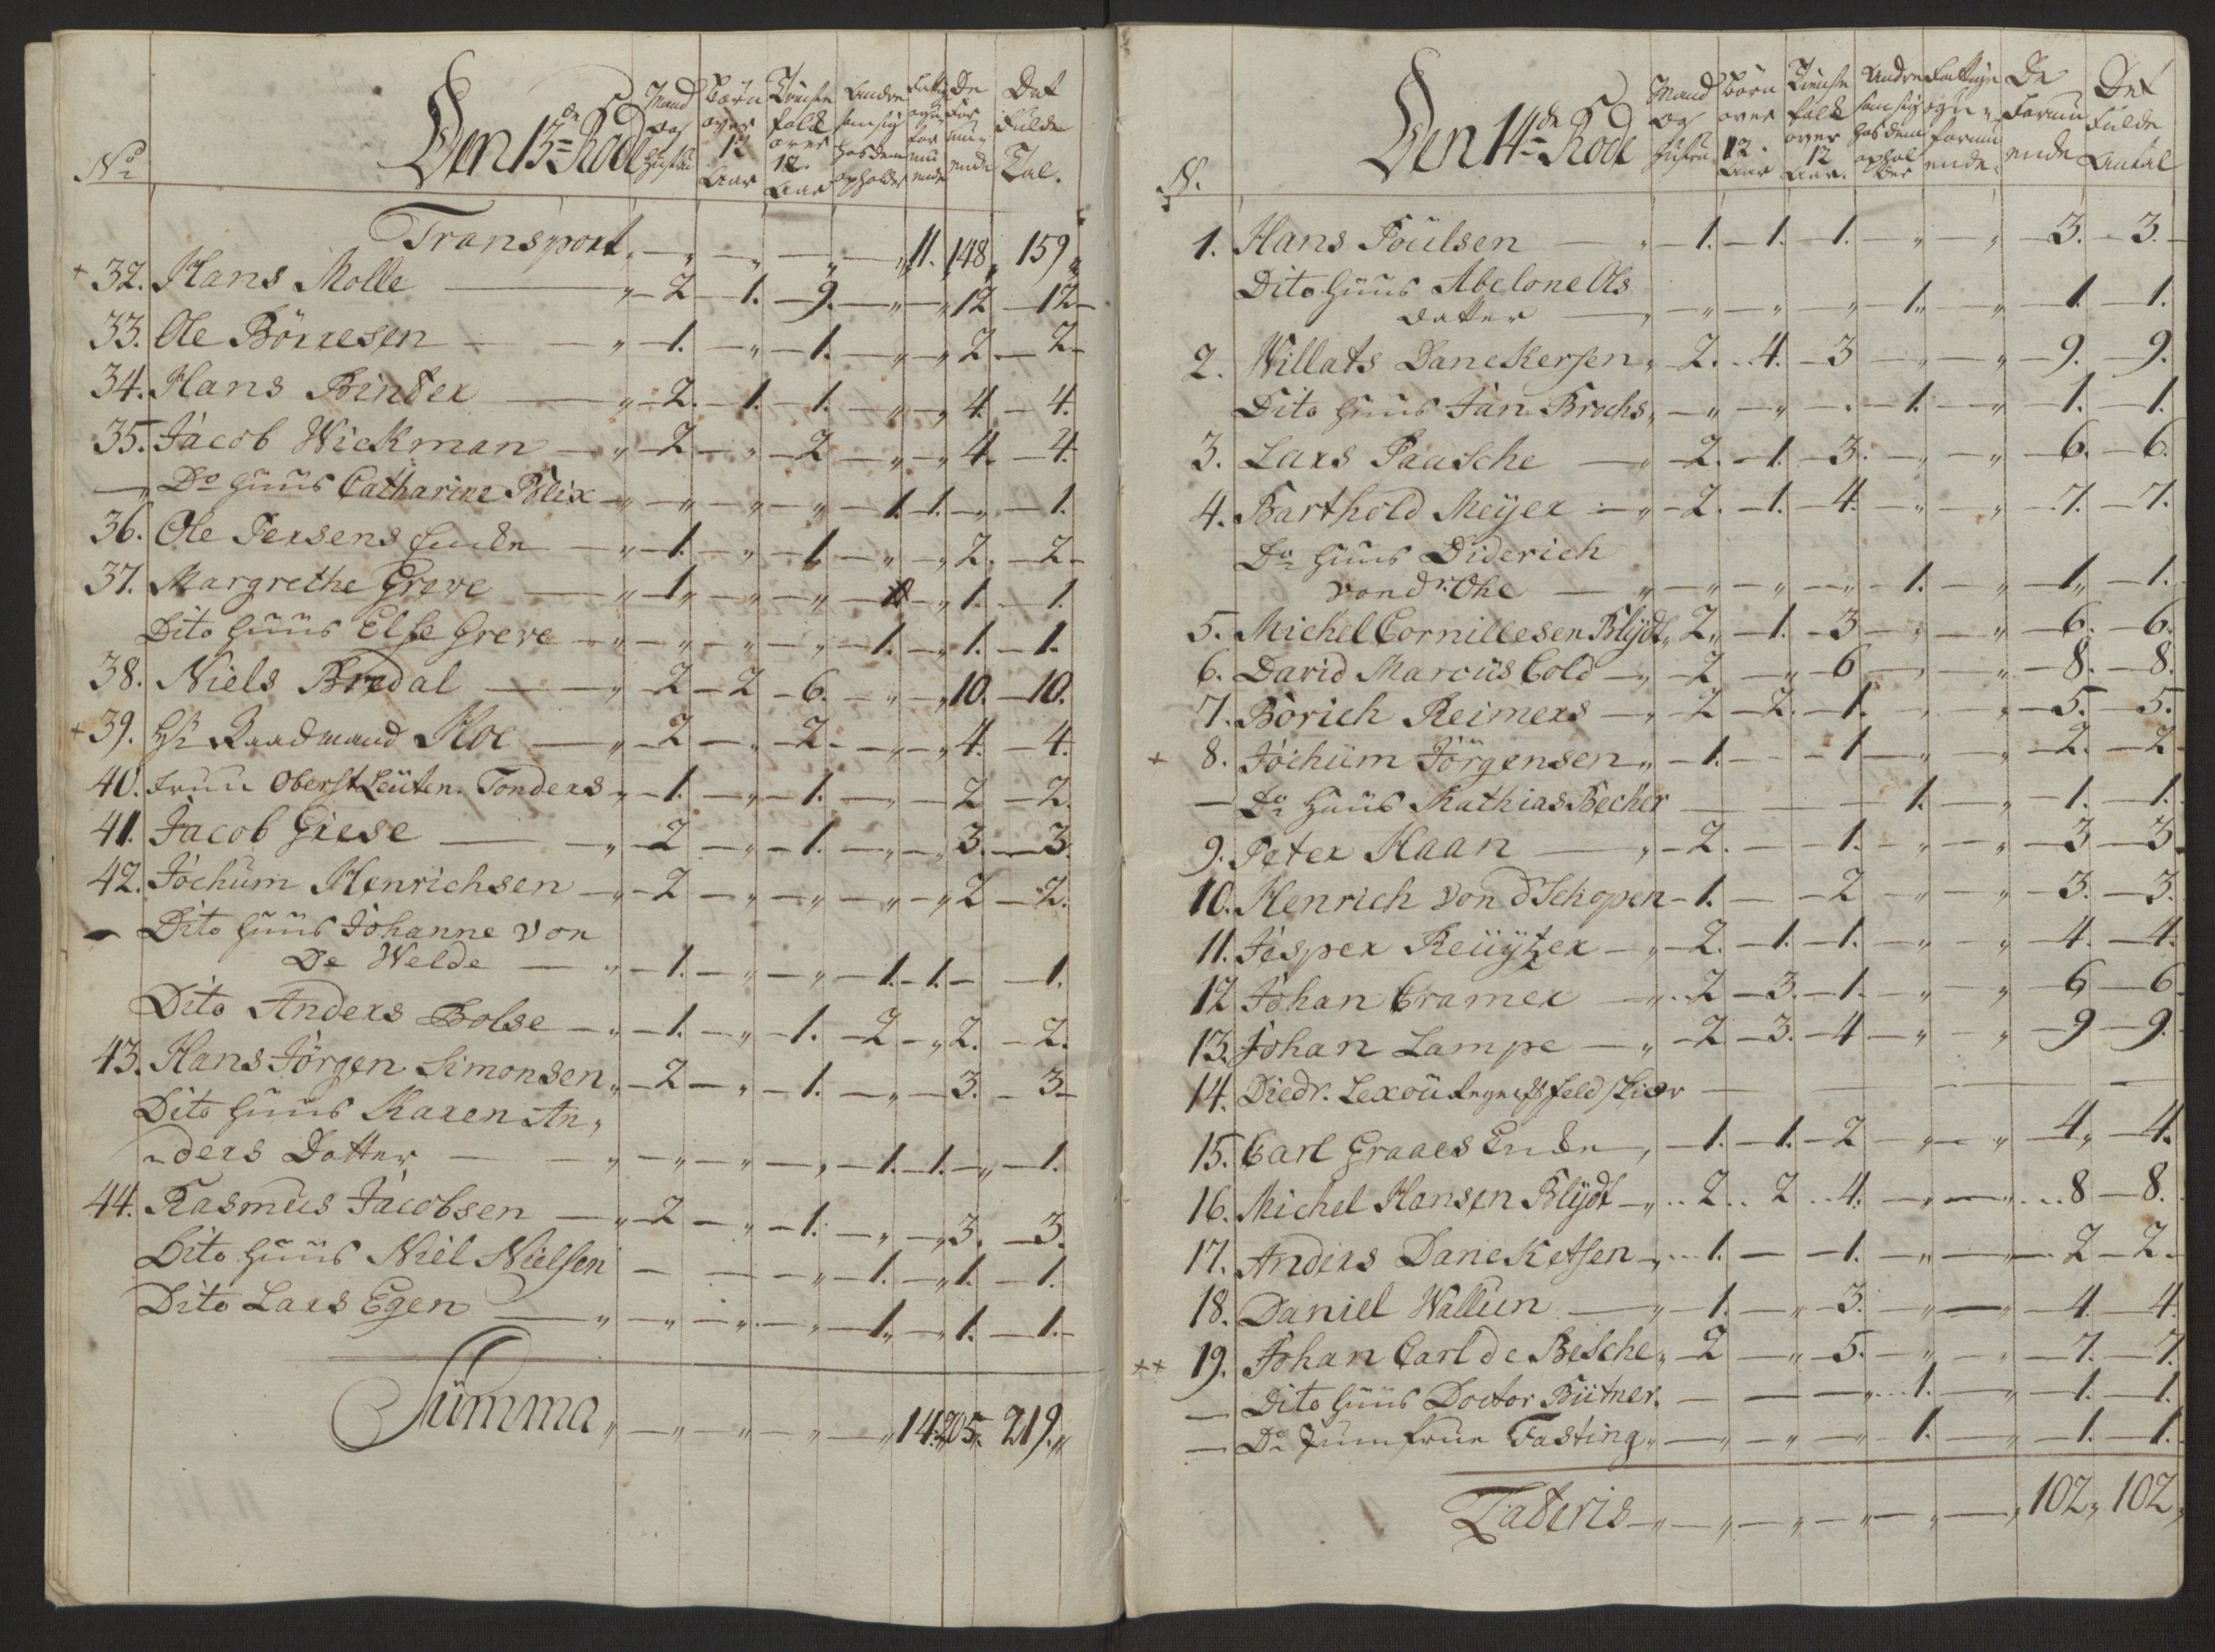 No
Den 13de Rode
Mand og Hustru
Børn over 12 Aar
Tieniste folk over 12 Aar
Andre som sig hos dem opholder
Fattige og u-formuende
De Formuende
Det Fulde Tal.
Transport " — " — " — " — " 11. 148 " 159 "
+ 32. Hans Molle — " — 2 — 1. — 9. — " — " 12 — 12 —
33. Ole Börresen — " — 1. — " — 1. — " — " 2 — 2 —
34. Hans Binder — " — 2. — 1. — 1. — " — " 4. — 4.
35. Jacob Wickman — " — 2 — " — 2 — " — " 4. — 4.
— " Do Huus Catharine Blix — " — " — " — " — 1. 1. — " — 1.
36. Ole Persens Encke — " — 1. — " — 1. — " — " 2. — 2 —
37. Margrethe Greve — " — 1. — " — " — " — " 1. — 1.
Dito Huus Else Greve — " — " — " — " — 1. — " 1. — 1.
38. Niels Bredal — " 2 — 2 — 6. — " — " 10. — 10.
+ 39. Hr Raadmand Koe — " — 2 — " — 2 — " — " 4. — 4.
40. Fruu Oberst Leüten. Tonders " — 1. — " — 1. — " — 2 — 2.
41. Jacob Giese — " — 2 — " — 1. — " — " 3. — 3.
42. Jöchum Henrichsen — " — 2 — " — " — " — " 2 — 2.
— Dito Huus Johanne von
De Welde — " — 1. — " — " — 1. 1. — — 1.
Dito Anders Bolse — " — 1. — " — 1. — 2 — " 2. — 2.
43. Hans Jörgen Simonsen " — 2 — " — 1. — " — 3. — 3 —
Dito Huus Karen An,
"ders Datter — " — " — " — " — 1. 1. — " — 1.
44. Rasmus Jacobsen — " — 2 — " — 1. — " — " 3. — 3.
Dito Huus Niel Nielsen — — — " — 1. — " 1. — 1.
Dito Lars Egen — " — " — " — " — 1. — " 1. — 1. —
Summa " — " — " — " — " 14. 205. 219. "
N.
Den 14de Rode
Mand og Hustru.
Børn over 12. Aar
Tieniste folk over 12 Aar.
Andre som sig hos dem opholder
Fattige og u-formuende.
De Formuende
Det Fulde Antal
1. Hans Poulsen — " — 1. — 1. — 1. — " — " — 3. — 3. —
Dito Huus Abelone Ols
Datter — " — " — " — " — 1. — " — 1. — 1.
2. Willats Danekersen " — 2. — 4. — 3 — " — " — 9. — 9.
Dito Huus Jan Brochs " — " — " — " — 1. — " — 1. — 1.
3. Lars Paasche — " — 2. — 1. — 3. — " — " — 6. — 6.
4. Barthold Meÿer — " — 2. — 1. — 4. — " — " — 7. — 7.
Do Huus Diderich
von dr. Ohe — " — " — " — " — 1. — " — 1. — 1.
5. Michel Cornillesen Blÿdt " 2 " — 1. — 3 — " — " — 6. — 6.
6. David Marcüs Cold — " — 2 — " — 6 — " — " — 8. — 8.
7. Borich Reimers — " — 2 — 2. — 1. — " — " — 5. — 5.
+ 8. Jöchüm Jörgensen " — 1. — — 1 — " — " — 2. — 2 —
— Do Huus Mathias Becher — — — 1. — " — 1. — 1.
9. Peter Haan — " — 2. — — 1. — " — " — 3 — 3.
10. Henrich von d Schopen — 1. — — 2 — " — " — 3. — 3.
11. Jesper Reüÿter — " — 2. — 1. — 1. — " — " — 4. — 4.
12. Johan Cramer — " — 2 — 3. — 1. — " — " — 6 — 6
13. Johan Lampe — " — 2 — 3. — 4 — " — " — 9 — 9.
14. Diedr. Lexoü Regmts Feldskier — — — — —
15. Carl Graaes Encke " — 1. — 1. — 2 — " — " — 4 " — 4.
16. Michel Hansen Blÿdt — " 2 .. 2 .. 4. — " — " .. 8 — 8.
17. Anders Danekersen — " — 1. — — 1. — " — " — 2 — 2.
18. Daniel Wallün — " — 1. — " — 3. — " — " — 4. — 4.
++ 19. Johan Carl de Besche " — 2 — " — 5. — " — " — 7. — 7.
— Dito Huus Doctor Bütner. — — — " 1. — " — 1. — 1.
— Do Jumfrue Fasting " — " — " — " — 1. — " — 1. — 1.
Lateris — " — " — " — " — " — " 102 " 102 "